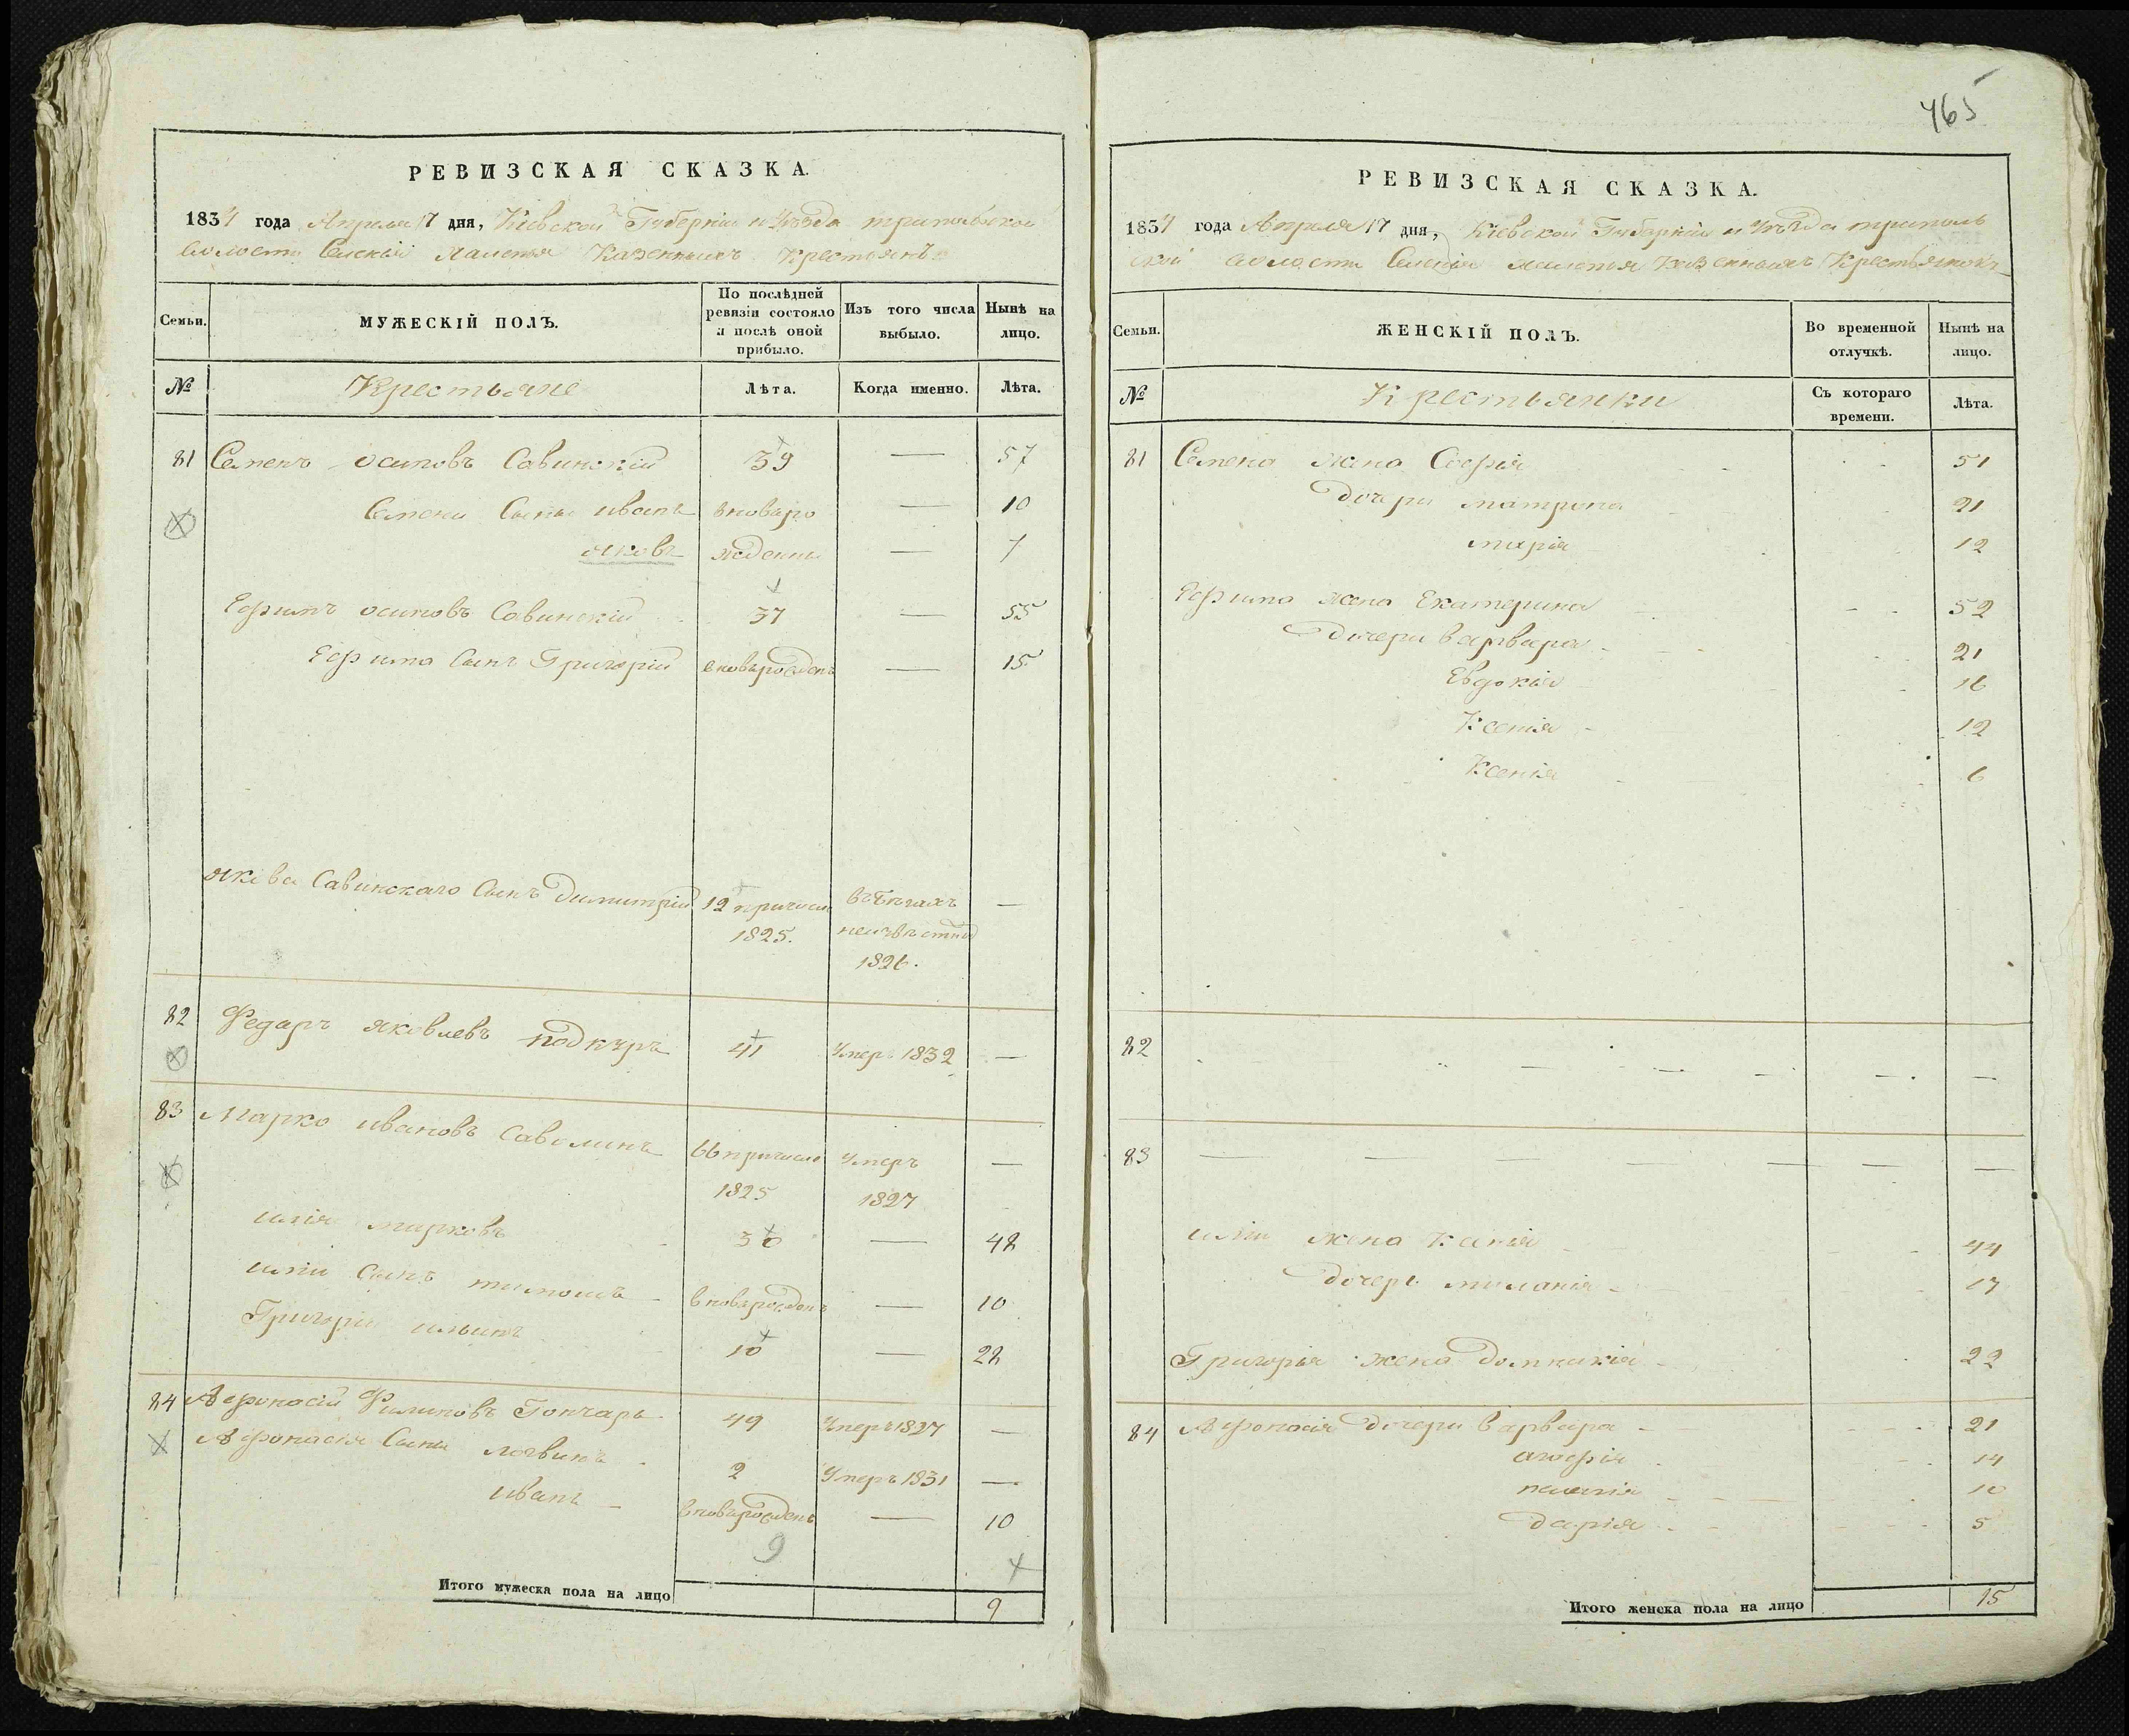 465
РЕВИЗСКАЯ СКАЗКА.
1834 года Апреля 17 дня, Кіевской Губерніи и Уѣзда трипольской
волости Селенія Казенныхъ Крестьянъ
Семьи.
МУЖЕСКІЙ ПОЛЪ.
По послѣдней ревизіи состояло и послѣ оной прибыло.
Изъ того числа выбыло.
Нынѣ на лицо.
№ Крестьяне Лѣта. Когда именно. Лѣта.
81 Семенъ осиповъ Савинскій 39 — 57
Семена Сыны иванъ вноваро — 10
яковъ ждены — 7
Ефимъ осиповъ Савинскій 37 — 55
Ефима Сынъ Григорій вноварожденъ — 15
якова Савинскаго Сынъ Димитрій 12 причисл въ бѣгахъ —
1825. неизвѣстно
1826.
82 Федаръ яковлевъ 41 Умеръ 1832 —
83 Марко ивановъ 66 причисле Умеръ —
1825 1827
илія марковъ 30 — 48
иліи Сынъ вноварожденъ — 10
Григорій ильинъ 10 — 28
84 Афонасій Филиповъ Гончаръ 49 Умеръ 1827 —
Афонасія Сыны логвинъ 2 Умеръ 1831 —
иванъ вноварожденъ — 10
9
Итого мужеска пола на лицо 9
РЕВИЗСКАЯ СКАЗКА.
1834 года Апреля 17 дня, Кіевской Губерніи и Уѣзда триполь
ской волости Селенія Казенныхъ Крестьянокъ
Семьи.
ЖЕНСКІЙ ПОЛЪ.
Во временной отлучкѣ.
Нынѣ на лицо.
№ Крестьянки Съ котораго времени. Лѣта.
81 Семена жена Софія 51
Дочери матрона 21
марія 12
Ефима жена Екатерина 52
Дочери варвара 21
Евдокія 16
Ксенія 12
Ксенія 6
82 — — — — —
83 — — — — — — —
иліи жена Ксенія 44
Дочерь миланія 17
Григорія жена Домникія 22
84 Афонасія Дочери варвара 21
агафія 14
10
Дарія 5
Итого женска пола на лицо 15